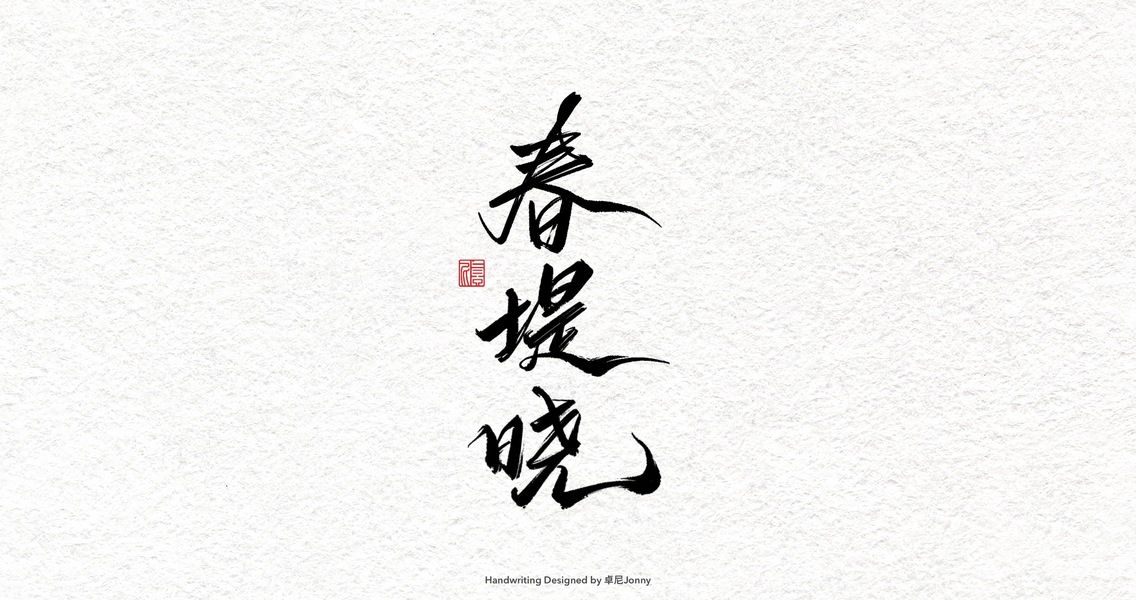 春堤晓
Handwriting Designed by 卓尼Jonny